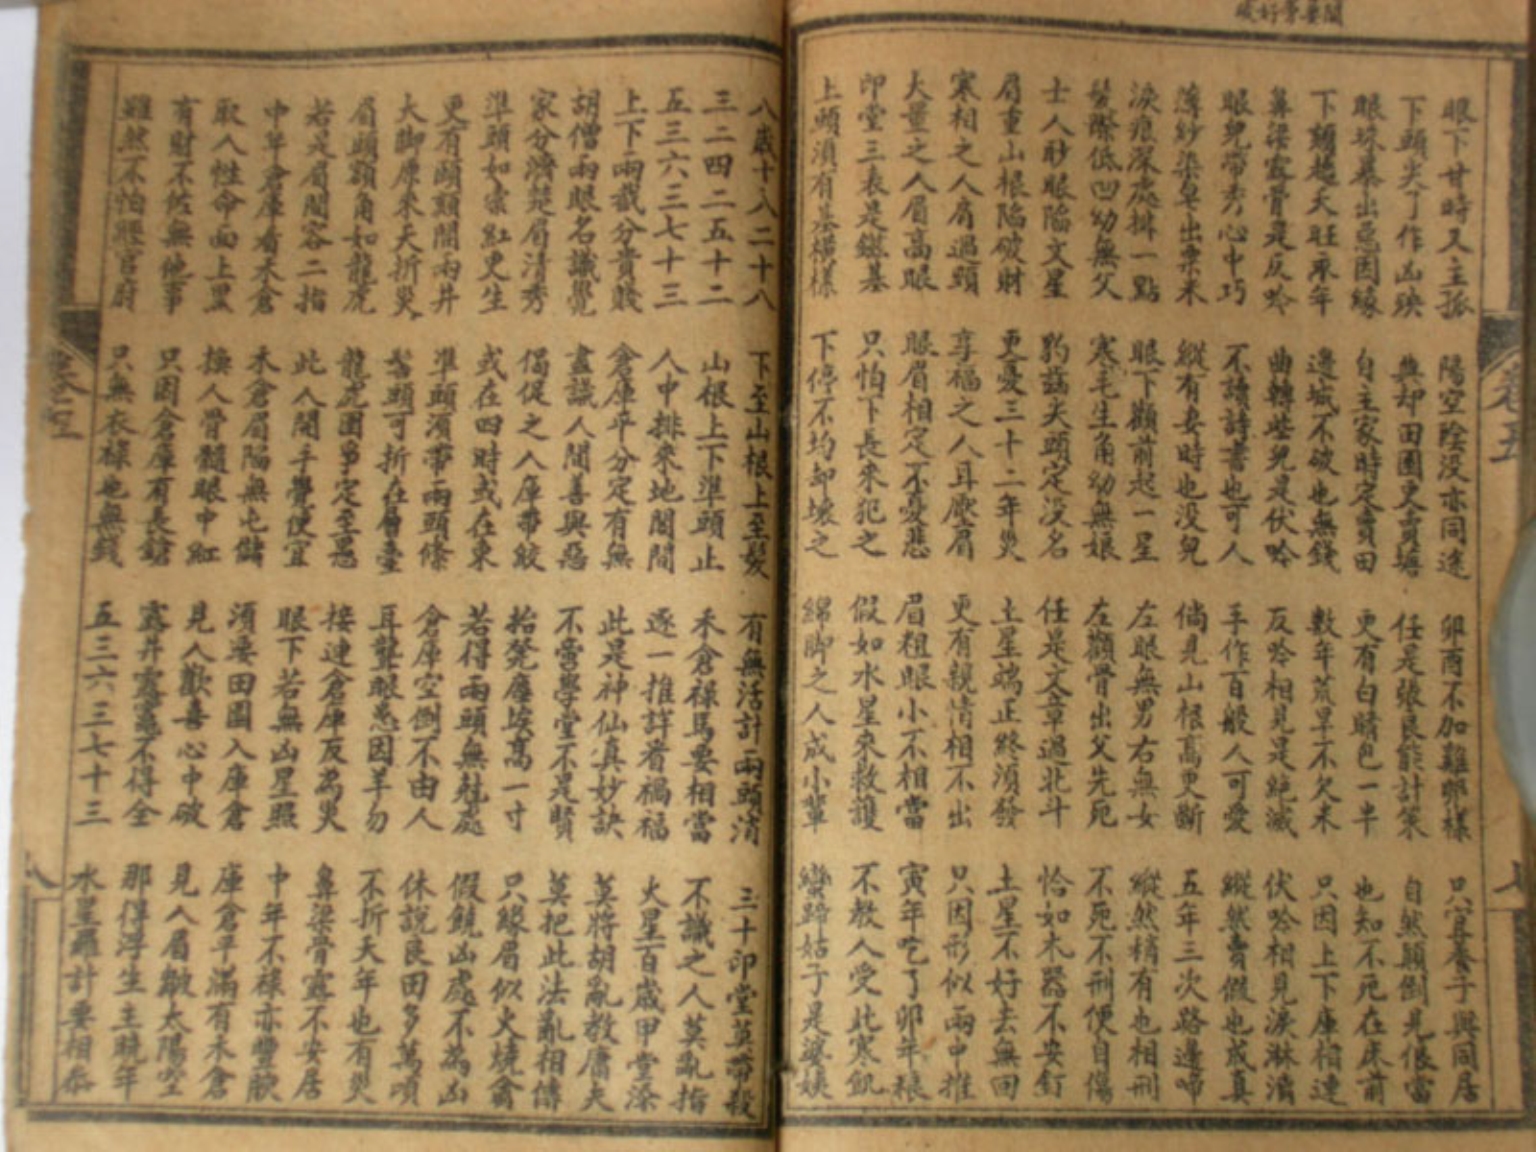 眼下廿時又主孤 陽空陰没亦同途 卯酉不加難卵樣 只宜養子與同居
下頦尖了作凶殃 典却田園更賣塘 任是張良能計策 自然顛倒見佷當
眼珠暴出惡因緣 自主家時定賣田 更有白睛包一半 也知不死在床前
下頦趨天旺永年 邊城不破也無錢 數年荒旱不欠米 只因上下庫相連
鼻梁露骨是反吟 曲轉些兒是伏吟 反吟相見是絶滅 伏吟相見淚淋濇
眼兒帶秀心中巧 不讀詩書也可人 手作百般人可愛 縱然賣假也成真
薄紗染皂出粟米 縱有妻時也没兒 倘見山根高更斷 五年三次路邊啼
淚痕深處排一點 眼下顴前起一星 左眼無男右無女 縱然稍有也相刑
髮際低凹幼無父 寒毛生角幼無娘 左顴骨出父先死 不死不刑便自傷
士人眇眼陷文星 豹齒尖頭定没名 任是文章過北斗 恰如木器不安釘
眉重山根陷破財 更憂三十二年災 土星端正終須發 土星不好去無回
寒相之人肩過頸 享福之人耳壓眉 更有親情相不出 只因形似兩中推
大量之人眉高眼 眼眉相定不憂悲 眉粗眼小不相當 寅年吃了卯年粮
印堂三表是鎡基 只怕下長來犯之 假如水星來救護 不教人受此寒飢
上頭須有基模樣 下停不均却壞之 綿脚之人成小輩 蠻蹄姑子是婆姨
八歲十八二十八 下至山根上至髮 有無活計兩頭消 三十印堂莫帶殺
三二四二五十二 山根上下準頭止 禾倉祿馬要相當 不識之人莫亂指
五三六三七十三 人中排來地閣間 逐一推詳看禍福 火星百歲甲堂添
上下兩截分貴賤 倉庫平分定有無 此是神仙真妙訣 莫將胡亂教庸夫
胡僧兩眼名識覺 盡識人間善與惡 不曾學堂不是賢 莫把此法亂相傳
家分濟楚眉清秀 偈促之人庫帶皎 抬凳塵埃高一寸 只緣眉似火燒禽
準頭如宗紅更生 或在四時或在東 若得兩頭無尅處 假饒凶處不為凶
更有頤頦間兩井 準頭須帶兩頭條 倉庫空倒不由人 休說良田多萬頃
大脚原來夭折災 髻頭可折在層臺 耳聾眼患因羊刃 不折天年也有災
眉頭額角如龍虎 龍虎困爭定至惡 接連倉庫反為災 鼻梁骨露不安居
若是眉間容二指 此人開手覺便宜 眼下若無凶星照 中年不祿亦豐歃
中年倉庫看禾倉 禾倉眉陷無屯儲 須要田園入庫倉 庫倉平滿有禾倉
取人性命面上黑 換人骨髓眼中紅 見人歡喜心中破 見人眉皺太陽空
有財不佐無他事 只因倉庫有長鎗 露井露竈不得全 那得浮生主晚年
雖然不怕經官府 只無衣祿也無錢 五三六三七十三 水星羅計要相忝
卷五
卷五
八